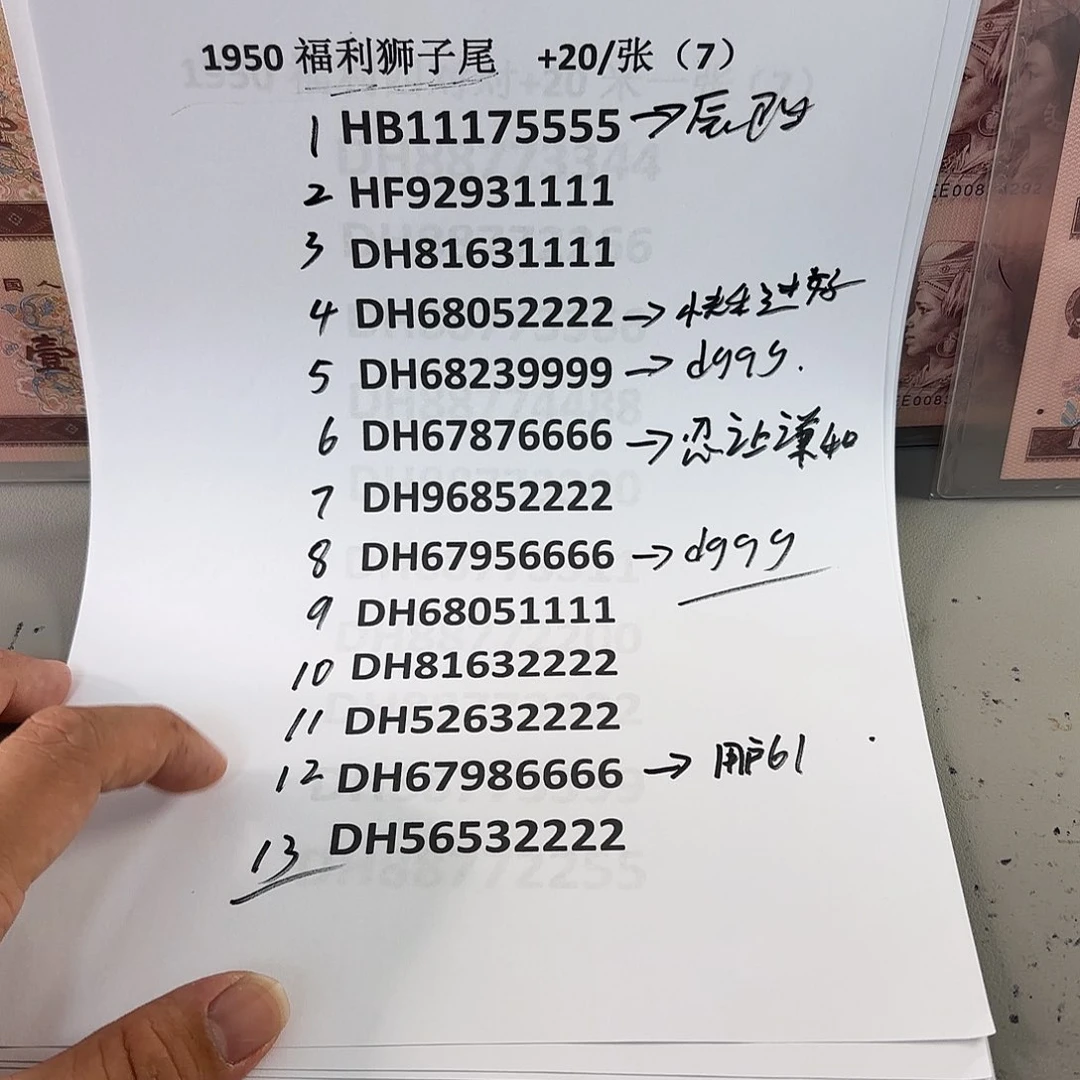 1950 福利狮子尾 +20/张（7）
1 HB11175555 →
2 HF92931111
3 DH81631111
4 DH68052222 → 快乐过好
5 DH68239999 → dggy.
6 DH67876666 → 忍让谦和
7 DH96852222
8 DH67956666 → dggy
9 DH68051111
10 DH81632222
11 DH52632222
12 DH67986666 → 用户61
13 DH56532222
壹